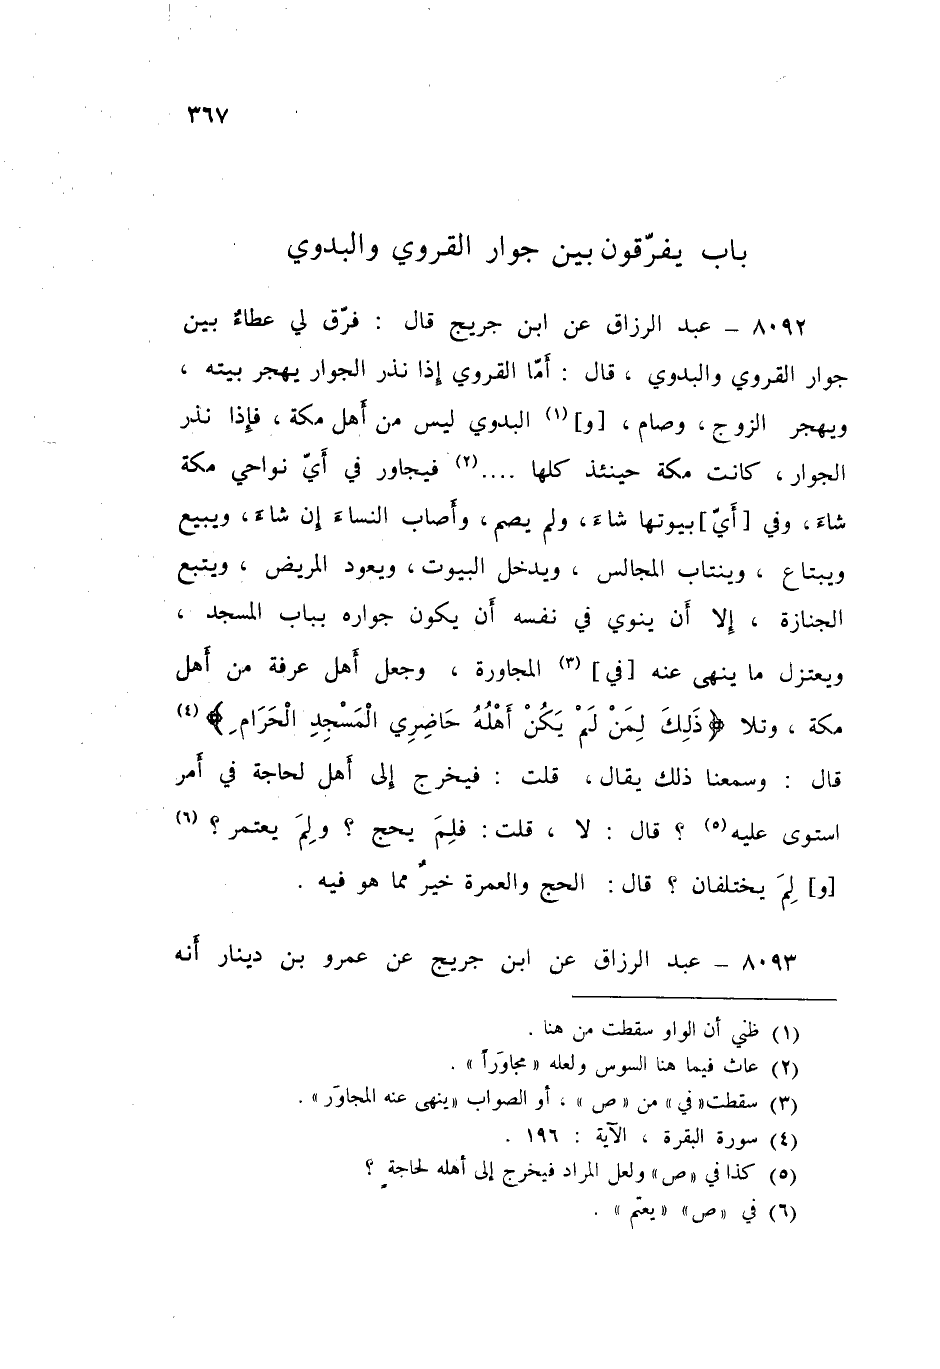 ٣٦٧
باب يفرّقون بين جوار القروي والبدوي
٨٠٩٢ – عبد الرزاق عن ابن جريج قال : فرّق لي عطاءٌ بين
جوار القروي والبدوي ، قال : أَمّا القروي إِذا نذر الجوار يهجر بيته ،
ويهجر الزوج ، وصام ، [و] (١) البدوي ليس من أَهل مكة ، فإِذا نذر
الجوار ، كانت مكة حينئذ كلها .... (٢) فيجاور في أَيّ نواحي مكة
شاءَ ، وفي [أَيّ] بيوتها شاءَ ، ولم يصم ، وأَصاب النساءَ إِن شاءَ ، ويبيع
ويبتاع ، وينتاب المجالس ، ويدخل البيوت ، ويعود المريض ، ويتبع
الجنازة ، إِلا أَن ينوي في نفسه أَن يكون جواره بباب المسجد ،
ويعتزل ما ينهى عنه [في] (٣) المجاورة ، وجعل أَهل عرفة من أَهل
مكة ، وتلا ﴿ذَلِكَ لِمَنْ لَمْ يَكُنْ أَهْلُهُ حَاضِرِي الْمَسْجِدِ الْحَرَامِ﴾ (٤)
قال : وسمعنا ذلك يقال ، قلت : فيخرج إِلى أَهل لحاجة في أَمر
استوى عليه (٥) ؟ قال : لا ، قلت : فلِمَ يحج ؟ ولِمَ يعتمر ؟ (٦)
[و] لِمَ يختلفان ؟ قال : الحج والعمرة خيرٌ مما هو فيه .
٨٠٩٣ – عبد الرزاق عن ابن جريج عن عمرو بن دينار أَنه
(١) ظني أن الواو سقطت من هنا .
(٢) عاث فيما هنا السوس ولعله «مجاوَراً» .
(٣) سقطت «في» من «ص» ، أو الصواب «ينهى عنه المجاوَر» .
(٤) سورة البقرة ، الآية : ١٩٦ .
(٥) كذا في «ص» ولعل المراد فيخرج إلى أهله لحاجة ؟
(٦) في «ص» «يعتم» .